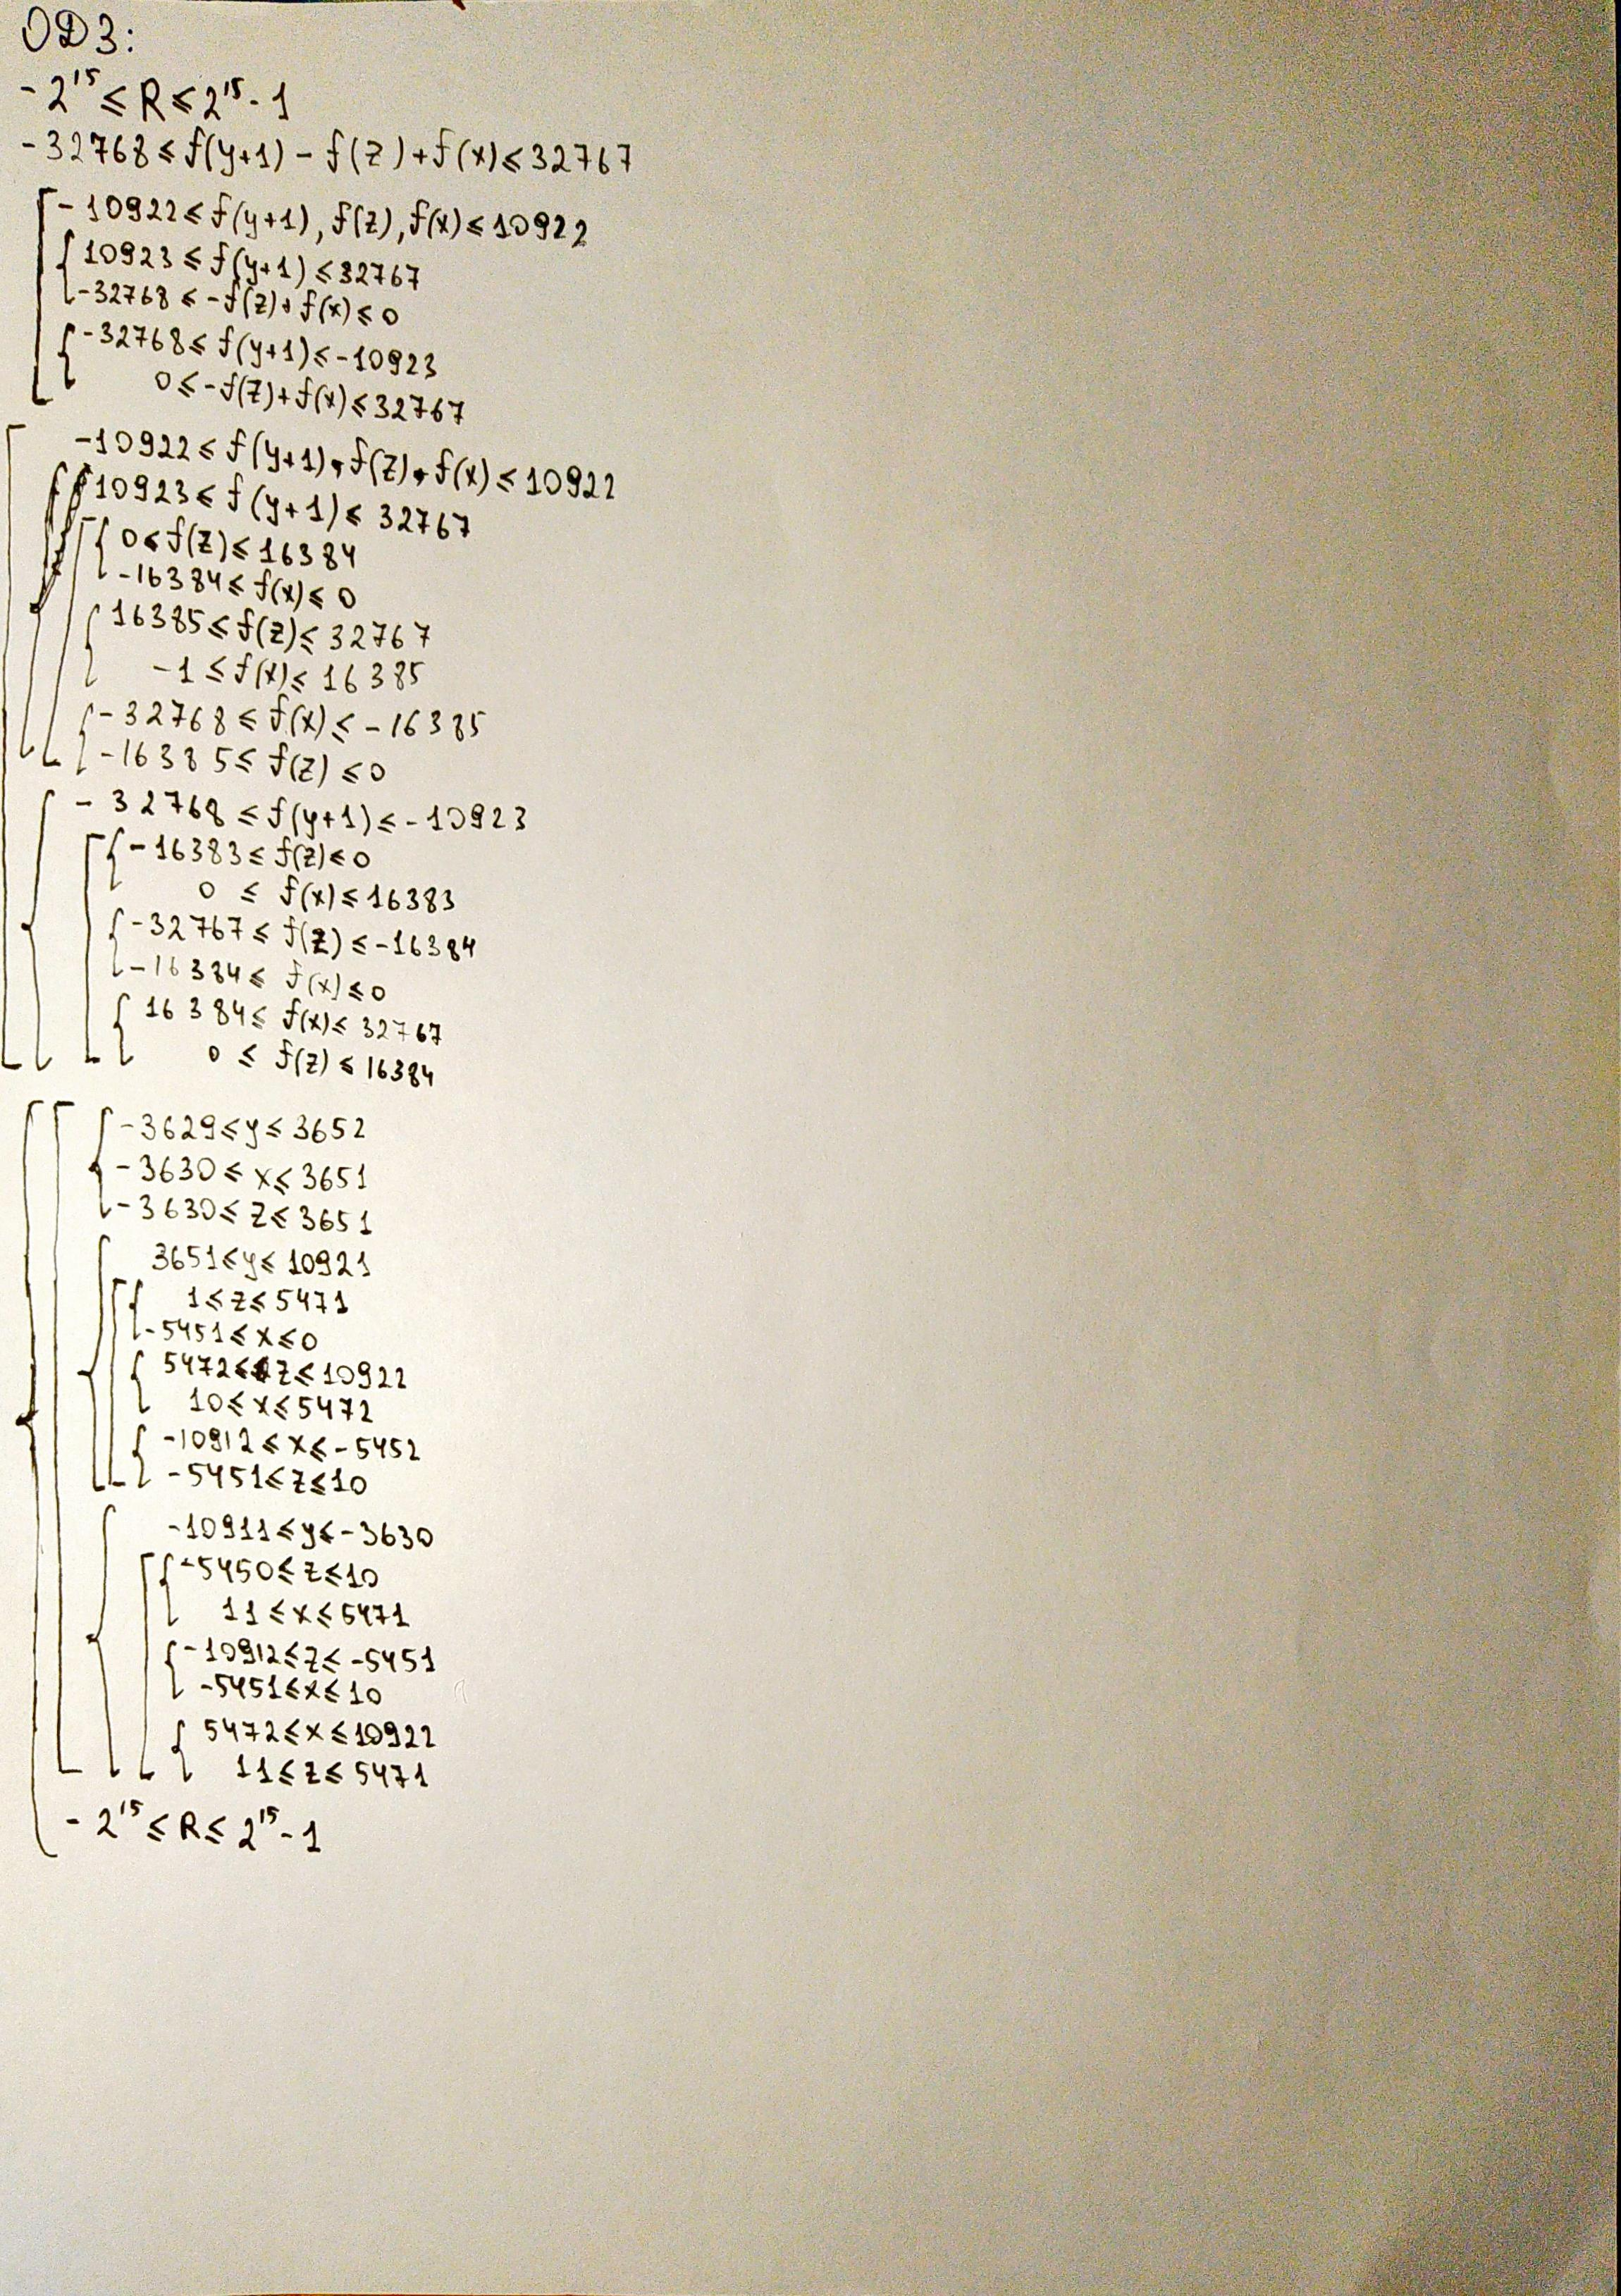 ОДЗ:
-2¹⁵ ≤ R ≤ 2¹⁵-1
-32768 ≤ f(y+1) - f(z) + f(x) ≤ 32767
-10922 ≤ f(y+1), f(z), f(x) ≤ 10922
10923 ≤ f(y+1) ≤ 32767
-32768 ≤ -f(z)+f(x) ≤ 0
-32768 ≤ f(y+1) ≤ -10923
0 ≤ -f(z)+f(x) ≤ 32767
-10922 ≤ f(y+1), f(z), f(x) ≤ 10922
10923 ≤ f(y+1) ≤ 32767
0 ≤ f(z) ≤ 16384
-16384 ≤ f(x) ≤ 0
16385 ≤ f(z) ≤ 32767
-1 ≤ f(x) ≤ 16385
-32768 ≤ f(x) ≤ -16385
-16385 ≤ f(z) ≤ 0
-32768 ≤ f(y+1) ≤ -10923
-16383 ≤ f(z) ≤ 0
0 ≤ f(x) ≤ 16383
-32767 ≤ f(z) ≤ -16384
-16384 ≤ f(x) ≤ 0
16384 ≤ f(x) ≤ 32767
0 ≤ f(z) ≤ 16384
-3629 ≤ y ≤ 3652
-3630 ≤ x ≤ 3651
-3630 ≤ z ≤ 3651
3651 ≤ y ≤ 10921
1 ≤ z ≤ 5471
-5451 ≤ x ≤ 0
5472 ≤ z ≤ 10922
10 ≤ x ≤ 5472
-10912 ≤ x ≤ -5452
-5451 ≤ z ≤ 10
-10911 ≤ y ≤ -3630
-5450 ≤ z ≤ 10
11 ≤ x ≤ 5471
-10912 ≤ z ≤ -5451
-5451 ≤ x ≤ 10
5472 ≤ x ≤ 10922
11 ≤ z ≤ 5471
-2¹⁵ ≤ R ≤ 2¹⁵-1